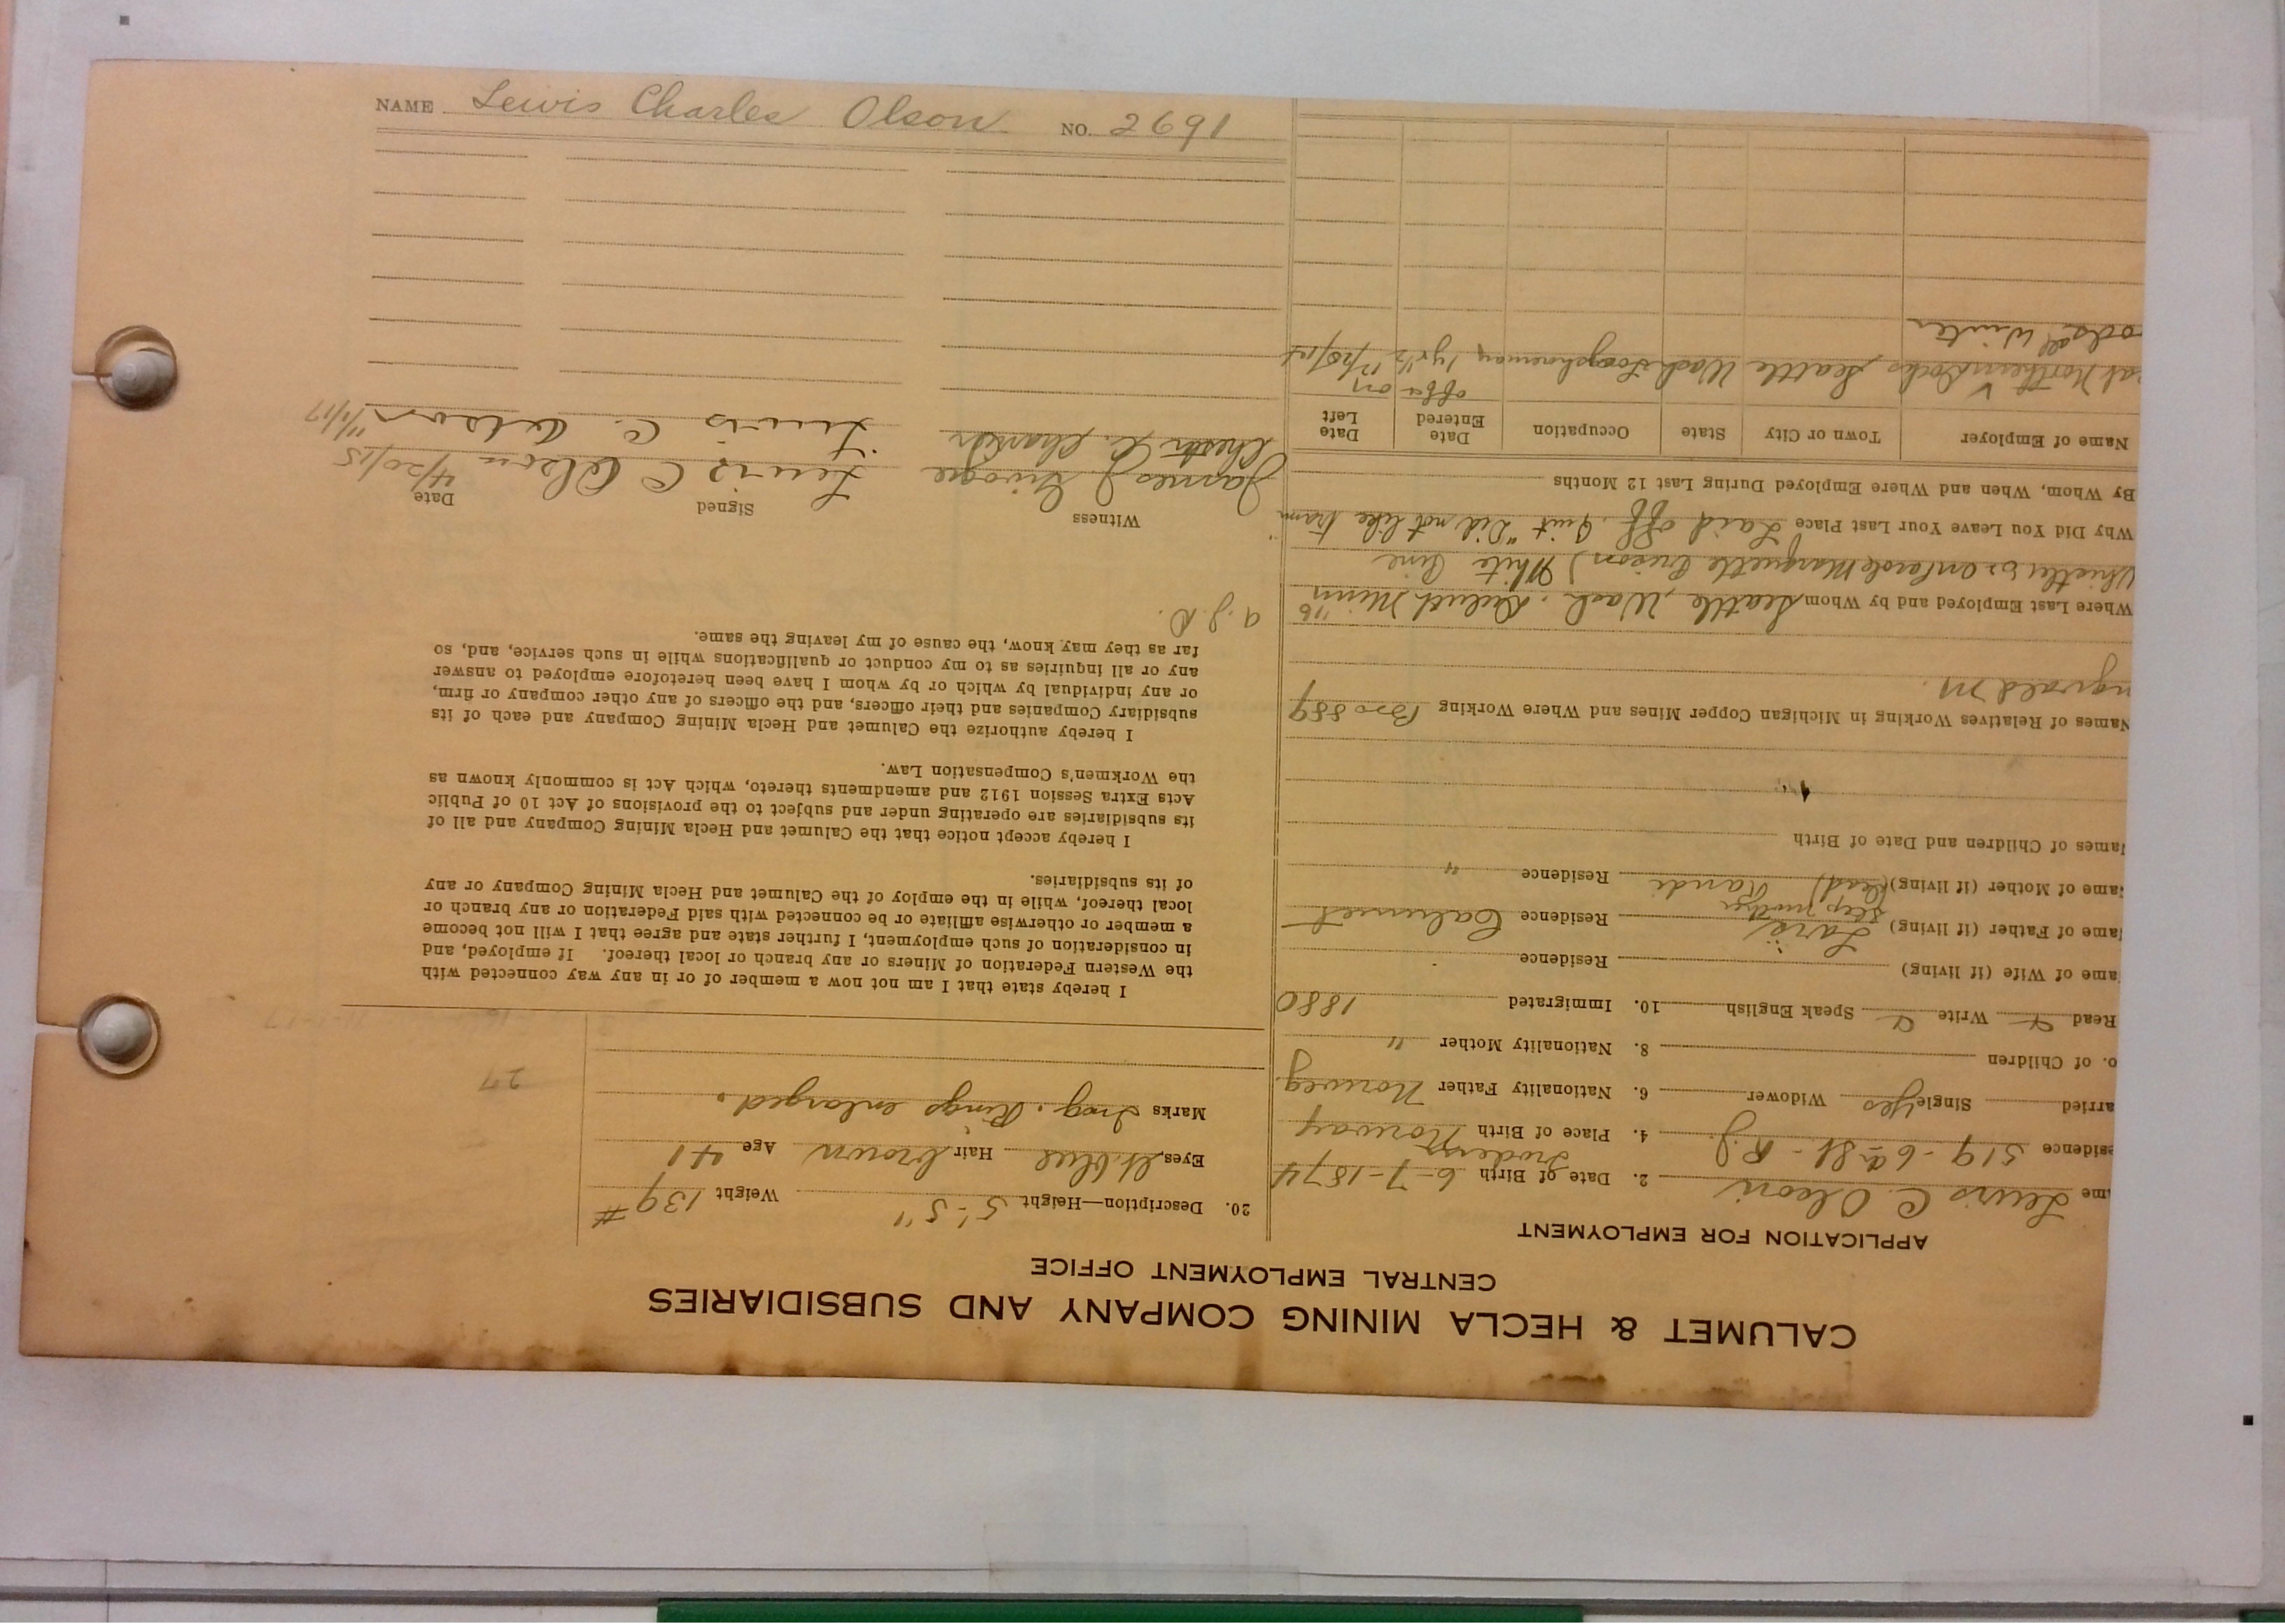 NAME Lewis Charles Olson NO. 2691
CALUMET & HECLA MINING COMPANY AND SUBSIDIARIES
CENTRAL EMPLOYMENT OFFICE
APPLICATION FOR EMPLOYMENT
me Lewis C. Olson 2. Date of Birth 6-7-1874
esidence 519-6th St - R.J. 4. Place of Birth Norway
arried Single Yes Widower 6. Nationality Father Norweg.
o. of Children 8. Nationality Mother "
Read Write Speak English 10. Immigrated 1880
ame of Wife (if living) Residence
ame of Father (if living) Lars Residence Calumet
step mother
ame of Mother (if living) (dead) Randi Residence "
ames of Children and Date of Birth
Names of Relatives Working in Michigan Copper Mines and Where Working Bro 889
ngvald M.
Where Last Employed and by Whom Seattle, Wash. Duluth Minn '16
Marquette Prison) White Pine
Why Did You Leave Your Last Place Laid off. Quit "Did not like tram
By Whom, When and Where Employed During Last 12 Months
Name of Employer Town or City State Occupation Date Entered Date Left
off & on
at Northern Docks Seattle Wash Longshoreman 1 yr
ods all winter
20. Description—Height 5'-5" Weight 139 #
Eyes lt. blue Hair brown Age 41
Marks Ing. Rings enlarged.
27
I hereby state that I am not now a member of or in any way connected with
the Western Federation of Miners or any branch or local thereof. If employed, and
in consideration of such employment, I further state and agree that I will not become
a member or otherwise affiliate or be connected with said Federation or any branch or
local thereof, while in the employ of the Calumet and Hecla Mining Company or any
of its subsidiaries.
I hereby accept notice that the Calumet and Hecla Mining Company and all of
its subsidiaries are operating under and subject to the provisions of Act 10 of Public
Acts Extra Session 1912 and amendments thereto, which Act is commonly known as
the Workmen's Compensation Law.
I hereby authorize the Calumet and Hecla Mining Company and each of its
subsidiary Companies and their officers, and the officers of any other company or firm,
or any individual by which or by whom I have been heretofore employed to answer
any or all inquiries as to my conduct or qualifications while in such service, and, so
far as they may know, the cause of my leaving the same.
Witness Signed Date
James J. Lewis C Olson 4/20/15
Chester L. Lewis C. Olson 11/1/17